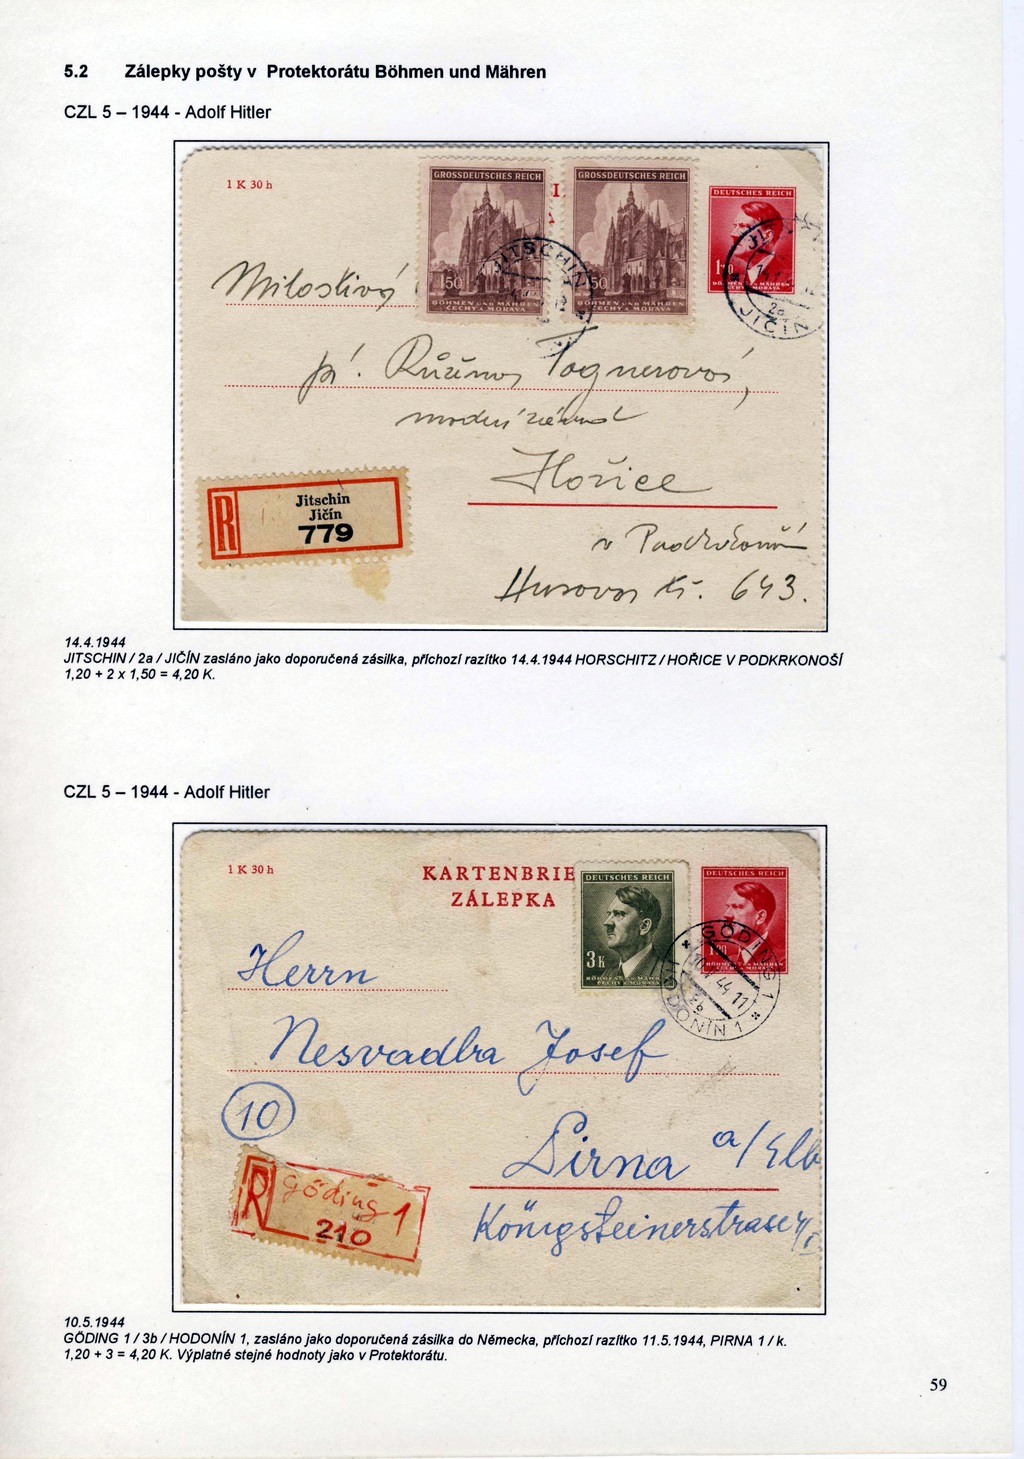 5.2 Zálepky pošty v Protektorátu Böhmen und Mähren
CZL 5 – 1944 - Adolf Hitler
1 K 30 h
GROSSDEUTSCHES REICH
150
BÖHMEN UND MÄHREN
ČECHY A MORAVA
GROSSDEUTSCHES REICH
150
BÖHMEN UND MÄHREN
ČECHY A MORAVA
DEUTSCHES REICH
1.20
BÖHMEN U. MÄHREN
ČECHY A MORAVA
JITSCHIN
2a
JIČÍN
Milostivá
pí. Růžena Tognerová,
modní závod
Hořice
v Podkrkonoší
Husova tř. 643.
R
Jitschin
Jičín
779
14.4.1944
JITSCHIN / 2a / JIČÍN zasláno jako doporučená zásilka, příchozí razítko 14.4.1944 HORSCHITZ / HOŘICE V PODKRKONOŠÍ
1,20 + 2 x 1,50 = 4,20 K.
CZL 5 – 1944 - Adolf Hitler
1 K 30 h
KARTENBRIE
ZÁLEPKA
DEUTSCHES REICH
3 K
BÖHMEN U. MÄHREN
ČECHY A MORAVA
DEUTSCHES REICH
1.20
BÖHMEN U. MÄHREN
ČECHY A MORAVA
GÖDING 1
10.V.44 11
3b
HODONÍN 1
Herrn
Nesvadba Josef
10
Pirna a/Elb
Königsteinerstrasse
R
Göding 1
210
10.5.1944
GÖDING 1 / 3b / HODONÍN 1, zasláno jako doporučená zásilka do Německa, příchozí razítko 11.5.1944, PIRNA 1 / k.
1,20 + 3 = 4,20 K. Výplatné stejné hodnoty jako v Protektorátu.
59